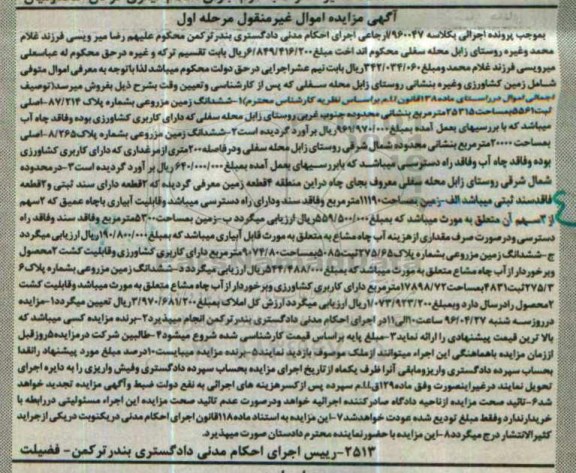 آگهی مزایده اموال غیرمنقول مرحله اول
بموجب پرونده اجرائی بکلاسه 960047/ارجاعی اجرای احکام مدنی دادگستری بندرترکمن محکوم علیهم رضا میر ویسی فرزند غلام
محمد وغیره روستای زابل محله سفلی محکوم اند اخت مبلغ 6/849/416/200ریال بابت تقسیم ترکه و غیره درحق محکوم له عباسعلی
میرویسی فرزند غلام محمد ومبلغ 342/034/060ریال بابت نیم عشراجرایی درحق دولت محکوم میباشد لذا باتوجه به معرفی اموال متوفی
شامل زمین کشاورزی وغیره بنشانی روستای زابل محله سفلی که پس از کارشناسی وتعیین وقت بشرح ذیل بفروش میرسد(توصیف
اجمالی اموال درراستای ماده138قانون ا.م براساس نظریه کارشناس محترم)1-ششدانگ زمین مزروعی بشماره پلاک 87/214-اصلی
ثبت5561بمساحت25315مترمربع بنشانی محدوده جنوب غربی روستای زابل محله سفلی که دارای کاربری کشاورزی بوده وفاقد چاه آب
میباشد که با بررسیهای بعمل آمده بمبلغ961/970/000ریال بر آورد گردیده است2-ششدانگ زمین مزروعی بشماره پلاک8/265-اصلی
بمساحت 20000مترمربع بنشانی محدوده شمال شرقی روستای زابل محله سفلی ودرفاصله200متری ازمرغداری که دارای کاربری کشاورزی
بوده وفاقد چاه آب وفاقد راه دسترسی میباشد که بابررسیهای بعمل آمده بمبلغ 640/000/000ریال بر آورد گردیده است3-درمحدوده
شمال شرقی روستای زابل محله سفلی معروف بجای چاه دراین منطقه 4قطعه زمین معرفی گردیده که 2قطعه دارای سند ثبتی و2قطعه
فاقدسند ثبتی میباشد الف-زمین بمساحت11190مترمربع فاقد سند ودارای راه دسترسی میباشد وقابلیت آبیاری باچاه عمیق که 2سهم
از 3سهم آن متعلق به مورث میباشد که بمبلغ 559/500/000ریال ارزیابی میگردد ب-زمین بمساحت5300مترمربع وفاقد سند وفاقد راه
دسترسی ودرصورت صرف مقداری ازهزینه آب چاه مشاع به متعلق به مورث قابل آبیاری میباشد که بمبلغ 190/800/000ریال ارزیابی میگردد
ج-ششدانگ زمین مزروعی بشماره پلاک275/65ثبت5085بمساحت 8741/80مترمربع دارای کاربری کشاورزی وقابلیت کشت 2محصول
وبرخوردار از آب چاه مشاع متعلق به مورث میباشد که بمبلغ 524/488/000ریال ارزیابی میگردد د-ششدانگ زمین مزروعی بشماره پلاک6
275/3ثبت4831بمساحت17898/72مترمربع دارای کاربری کشاورزی وبرخوردار از آب چاه مشاع متعلق به مورث میباشد وقابلیت کشت
2محصول رادرسال دارد وبمبلغ1/073/923/200ریال ارزیابی میگردد ارزش کل املاک بمبلغ 3/970/681/200ریال تعیین میگردد1-مزایده
درروزسه شنبه 96/04/27 ساعت10الی11در اجرای احکام مدنی دادگستری بندرترکمن انجام میپذیرد2-برنده مزایده کسی میباشد که
بالا ترین قیمت پیشنهادی را ارائه نماید3-مبلغ پایه براساس قیمت کارشناسی شده شروع میشود4-طالبین شرکت درمزایده5روزقبل
اززمان مزایده باهماهنگی این اجراء میتوانند ازملک موصوف بازدید نمایند5-برنده مزایده میبایست10درصد مبلغ مورد پیشنهاد رانقدا
بحساب سپرده دادگستری واریزومابقی آنرا ظرف یکماه از تاریخ اجرای مزایده بحساب سپرده دادگستری وفیش واریزی را به دایره اجرای
تحویل نمایند درغیراینصورت وفق ماده129ق.ا.م سپرده پس ازکسرهزینه های اجرائی به نفع دولت ضبط وآگهی مزایده تجدید خواهد
شد6-تائید صحت مزایده ازناحیه دادگاه صادرکننده اجرائیه خواهد ودرصورت عدم تائید صحت مزایده این اجراء مسئولیتی دررابطه با
خریدارندارد وفقط مبلغ تودیع شده عودت خواهدشد7-این مزایده به استناد ماده118قانون اجرای احکام مدنی دریکنوبت دریکی ازجراید
کثیرالانتشار درج میگردد8-این مزایده با حضورنماینده محترم دادستان صورت میپذیرد.
2513-رییس اجرای احکام مدنی دادگستری بندرترکمن- فضیلت